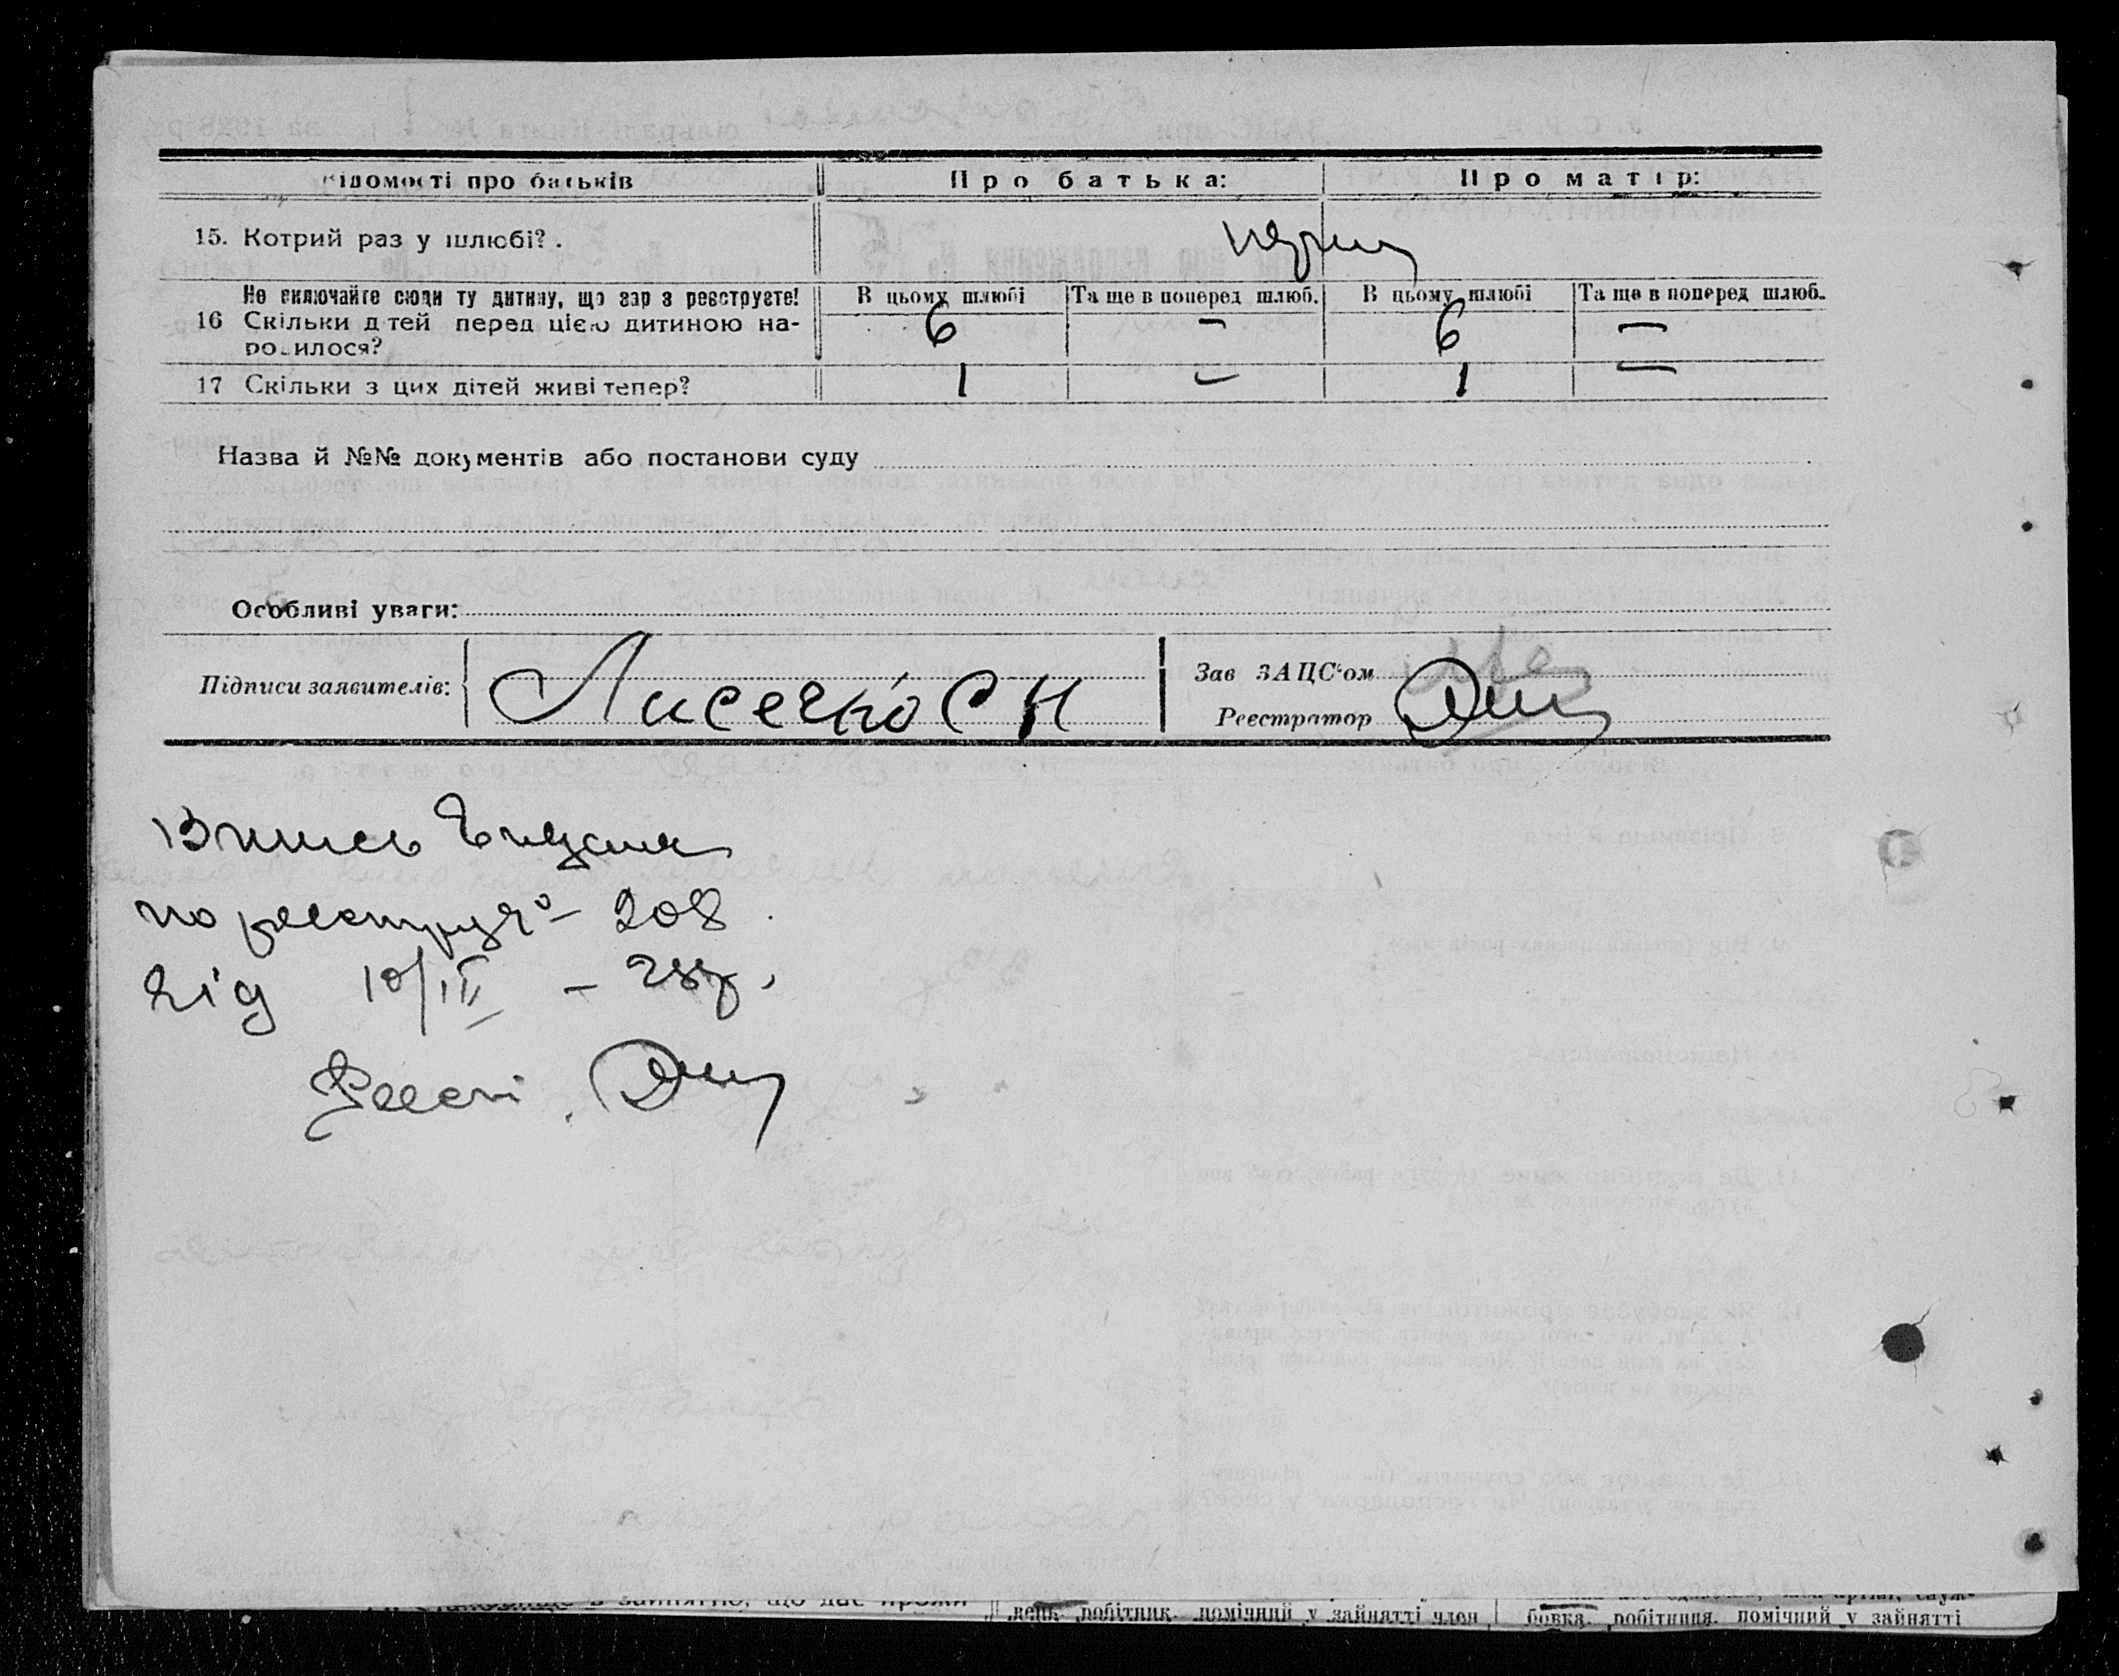 Відомості про батьків Про батька: Про матір:
15. Котрий раз у шлюбі?. перший
Не включайте сюди ту дитину, що зараз реєструєте! В цьому шлюбі Та ще в поперед шлюб. В цьому шлюбі Та ще в поперед шлюб.
16 Скільки дітей перед цією дитиною на- 6 — 6 —
родилося?
17 Скільки з цих дітей живі тепер? 1 — 1 —
Назва й №№ документів або постанови суду
Особливі уваги:
Підписи заявителів: Лисечко С Н Зав ЗАЦС'ом
Реєстратор
Випись
по реєстру 208
від 10/IV – 28 р.
Реєст.
день. робітник. помічний у зайнятті член бовка. робітниця. помічний у зайнятті